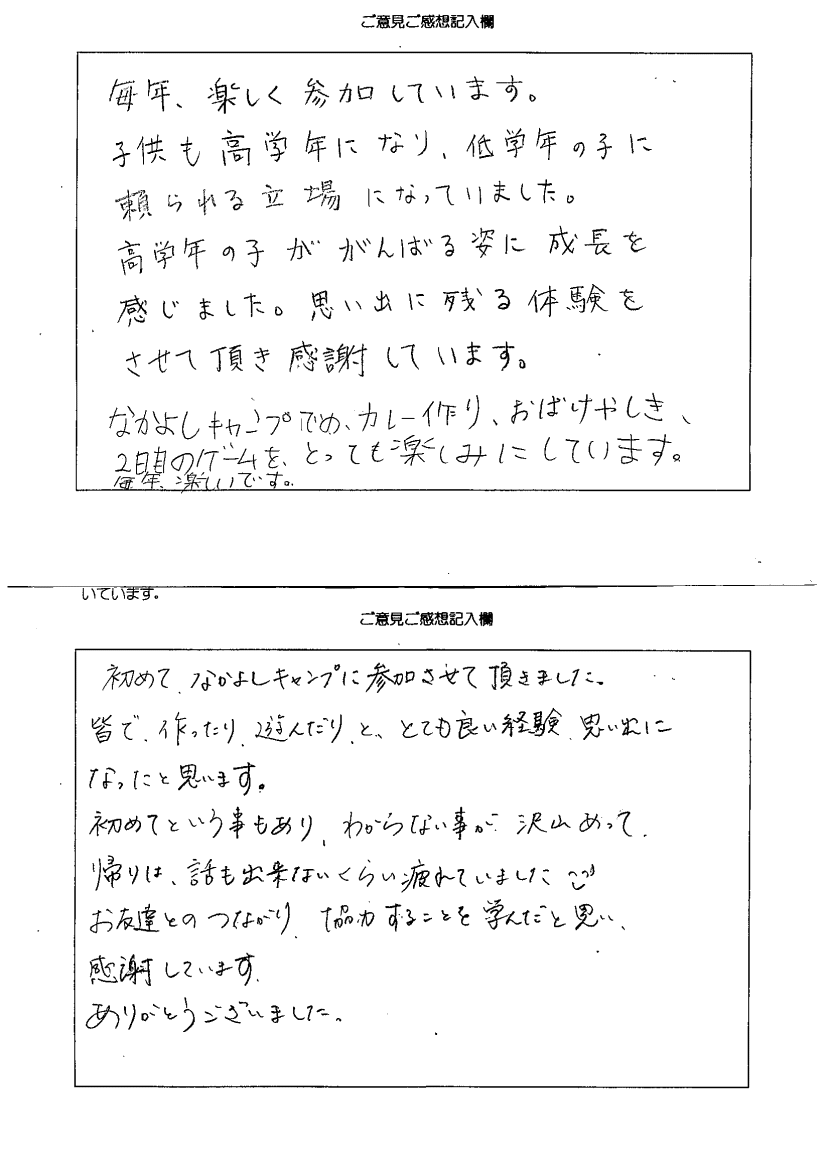 ご意見ご感想記入欄
毎年、楽しく参加しています。
子供も高学年になり、低学年の子に
頼られる立場になっていました。
高学年の子ががんばる姿に成長を
感じました。思い出に残る体験を
させて頂き感謝しています。
なかよしキャンプでの、カレー作り、おばけやしき、
2日目のゲームを、とっても楽しみにしています。
毎年、楽しいです。
いています。
ご意見ご感想記入欄
初めて、なかよしキャンプに参加させて頂きました。
皆で、作ったり、遊んだり、と、とても良い経験、思い出に
なったと思います。
初めてという事もあり、わからない事が、沢山あって、
帰りは、話も出来ないくらい疲れていました
お友達とのつながり、協力することを学んだと思い、
感謝しています。
ありがとうございました。